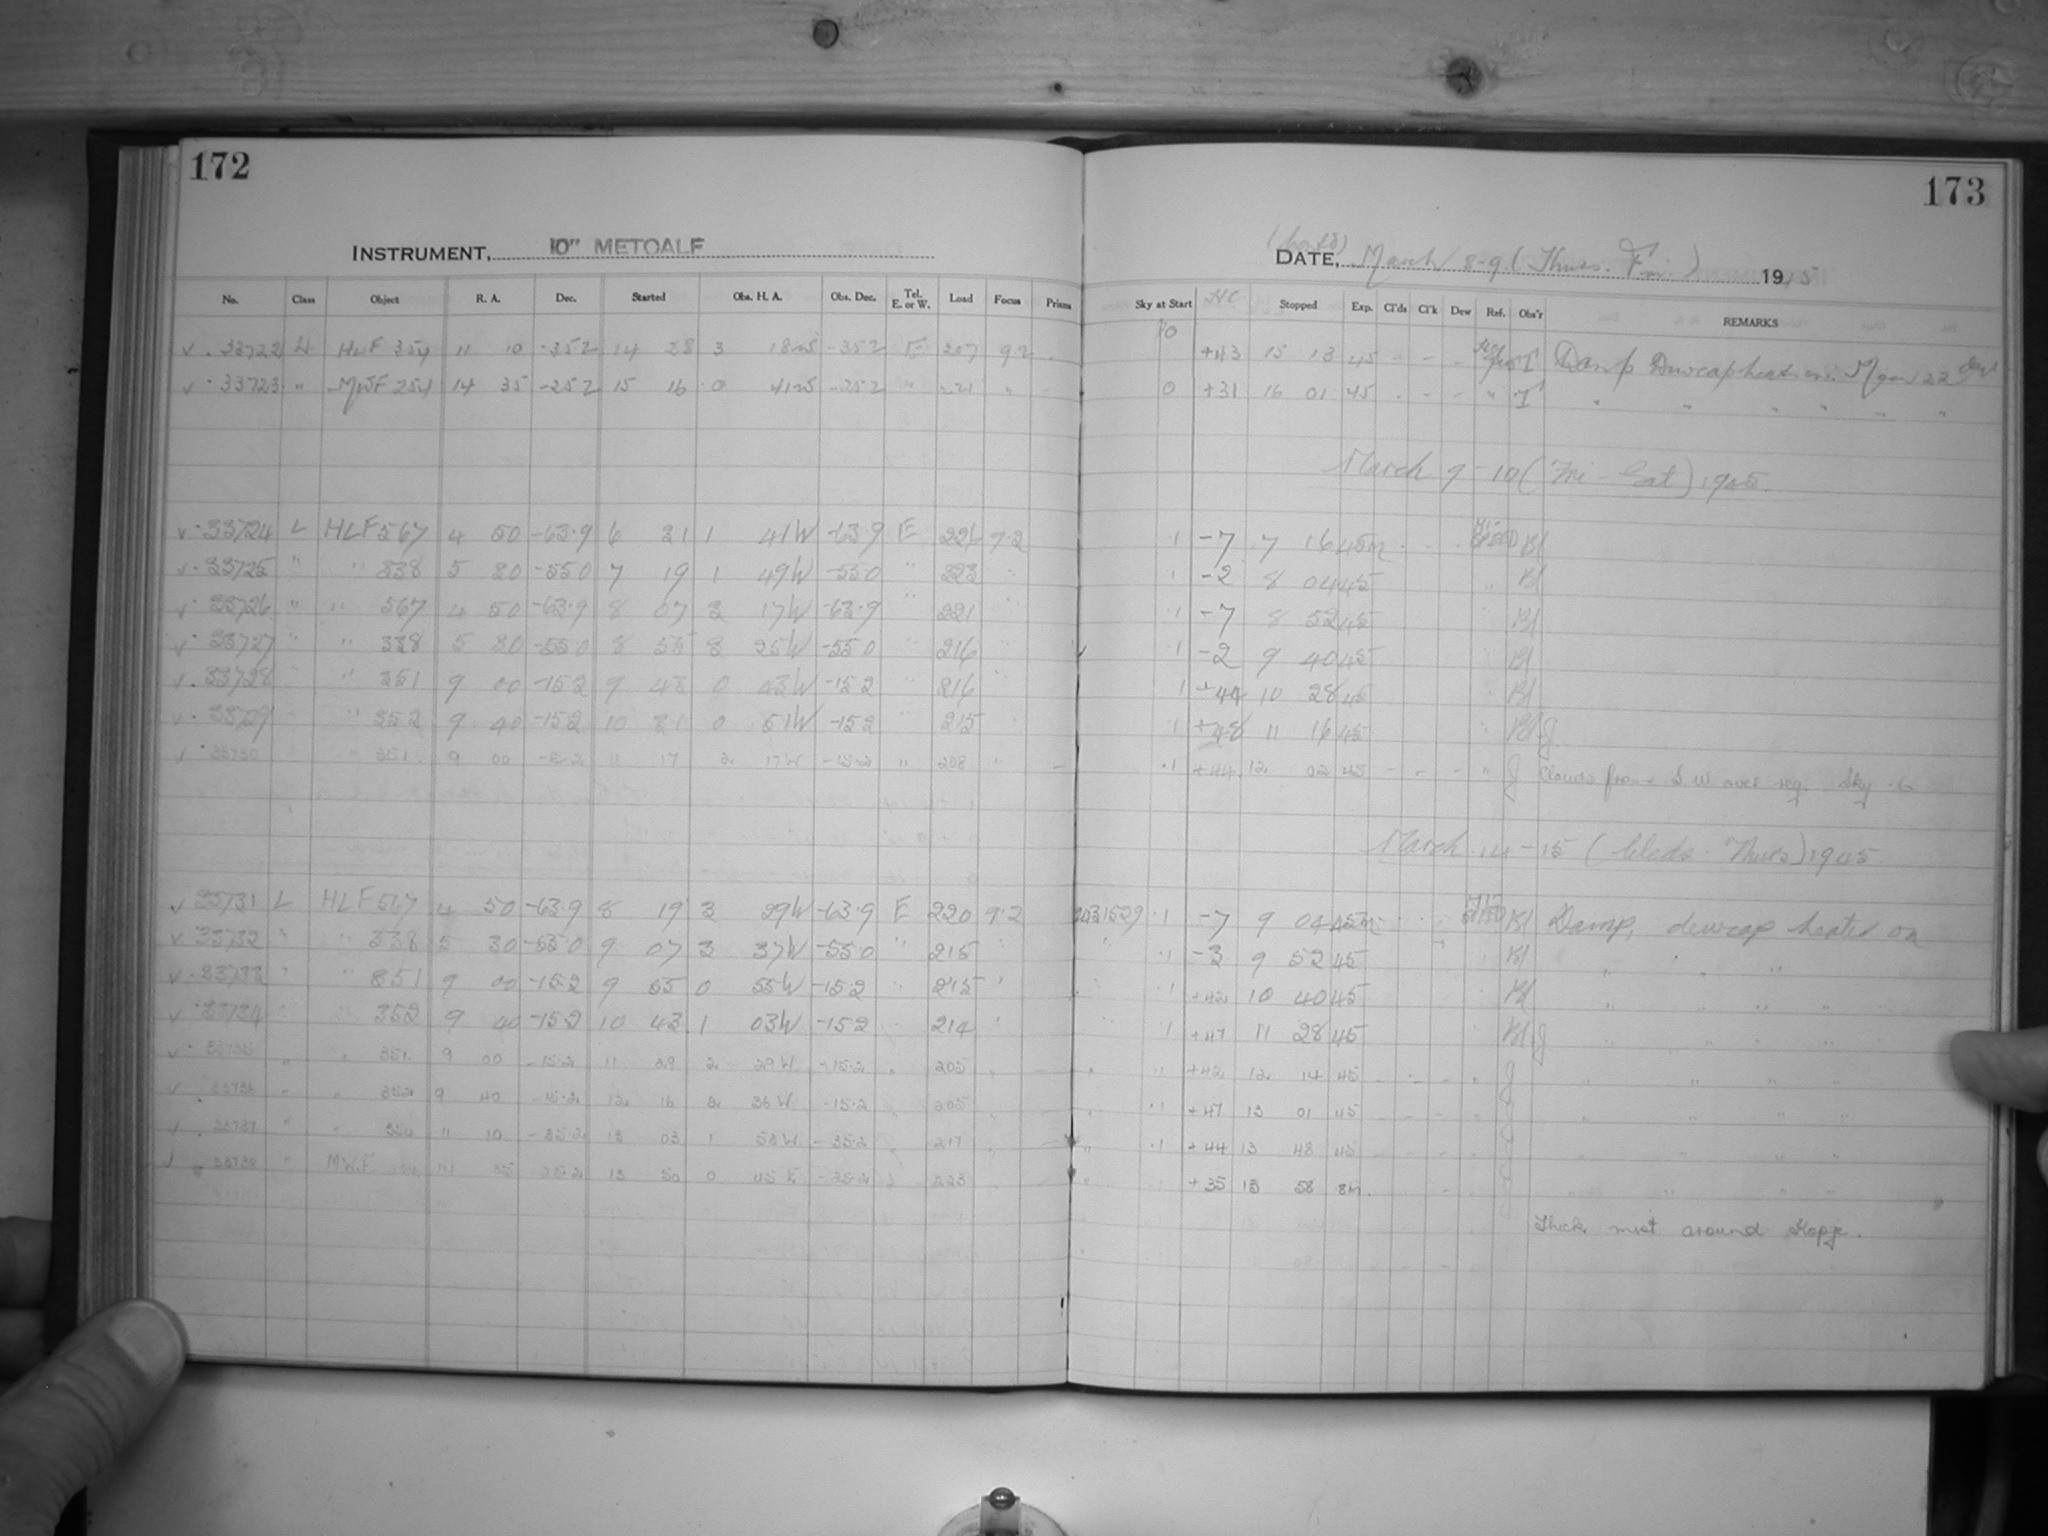 172
173
INSTRUMENT, 10" METCALF
DATE, March 8-9 (Thurs. Fri.) 1945
No. Class Object R. A. Dec. Started Obs. H. A. Obs. Dec. Tel. E. or W. Load Focus Prisms Sky at Start Stopped Exp. Cl'ds Cl'k Dew Ref. Obs'r REMARKS
33722 L HLF 354 11 10 -35.2 14 28 3 -35.2 E 207 9.2 +43 15 13 45 Damp Dewcap heat on
33723 " MWF 14 35 -25.2 15 16 0 -25.2 " 0 +31 16 01 45 - - - " " " " " "
March 9-10 (Fri - Sat) 1945.
33724 L HLF 567 4 50 -63.9 6 31 1 41W -63.9 E 226 9.2 .1 -7 7 16 45m Bl
33725 " " 338 5 30 -55.0 7 19 1 49W -55.0 " 223 " .1 -2 8 04 45 " Bl
33726 " " 567 4 50 -63.9 8 07 3 17W -63.9 " 221 " .1 -7 8 52 45 " Bl
33727 " " 338 5 30 -55.0 8 55 3 25W -55.0 " 216 " .1 -2 9 40 45 " Bl
33728 " " 351 9 00 -15.2 9 43 0 43W -15.2 " 216 " .1 +44 10 28 45 " Bl
33729 " " 352 9 40 -15.2 10 31 0 51W -15.2 " 215 " .1 +48 11 16 45 " Bl J
33730 " " 351 9 00 -15.2 11 17 2 17W -15.2 " 208 " - .1 +44 12 02 45 - - - " J Clouds from S.W over reg. Sky .6
March 14-15 (Weds - Thurs) 1945.
33731 L HLF 567 4 50 -63.9 8 19 3 29W -63.9 E 220 9.2 2431529 .1 -7 9 04 45m Bl Damp, dewcap heater on
33732 " " 338 5 30 -55.0 9 07 3 37W -55.0 " 215 " " .1 -3 9 52 45 " Bl " " "
33733 " " 351 9 00 -15.2 9 55 0 55W -15.2 " 215 " " .1 +42 10 40 45 " Bl " " "
33734 " " 352 9 40 -15.2 10 43 1 03W -15.2 " 214 " " .1 +47 11 28 45 " Bl J " " " "
33735 " " 351 9 00 -15.2 11 29 2 29W -15.2 " 205 " - " " +42 12 14 45 - - - " J " " " "
33736 " " 352 9 40 -15.2 12 16 2 36W -15.2 " 205 " - " .1 +47 13 01 45 - - - " J " " " "
33737 " " 354 11 10 -35.2 13 03 1 53W -35.2 " 217 " - " .1 +44 13 48 45 - - - " J " " " "
33738 " M.W.F. 14 35 -25.2 13 50 0 45E -25.2 223 - " +35 13 58 8m. " " " "
Thick mist around Kopje.